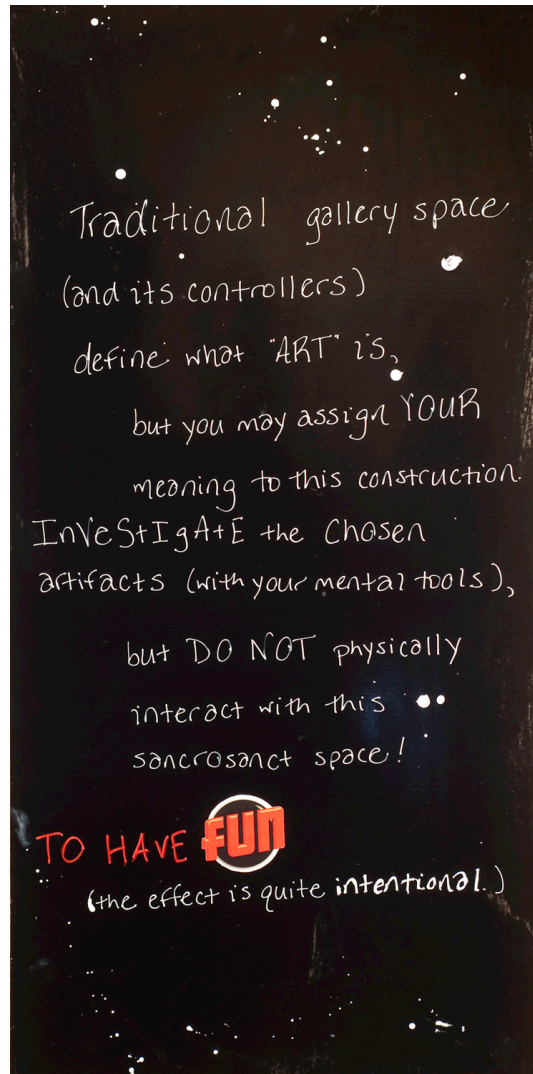 Traditional gallery space
(and its controllers)
define what "ART" is,
but you may assign YOUR
meaning to this construction.
InVeStIgAtE the Chosen
artifacts (with your mental tools),
but DO NOT physically
interact with this
sancrosanct space!
TO HAVE FUN
(the effect is quite intentional.)